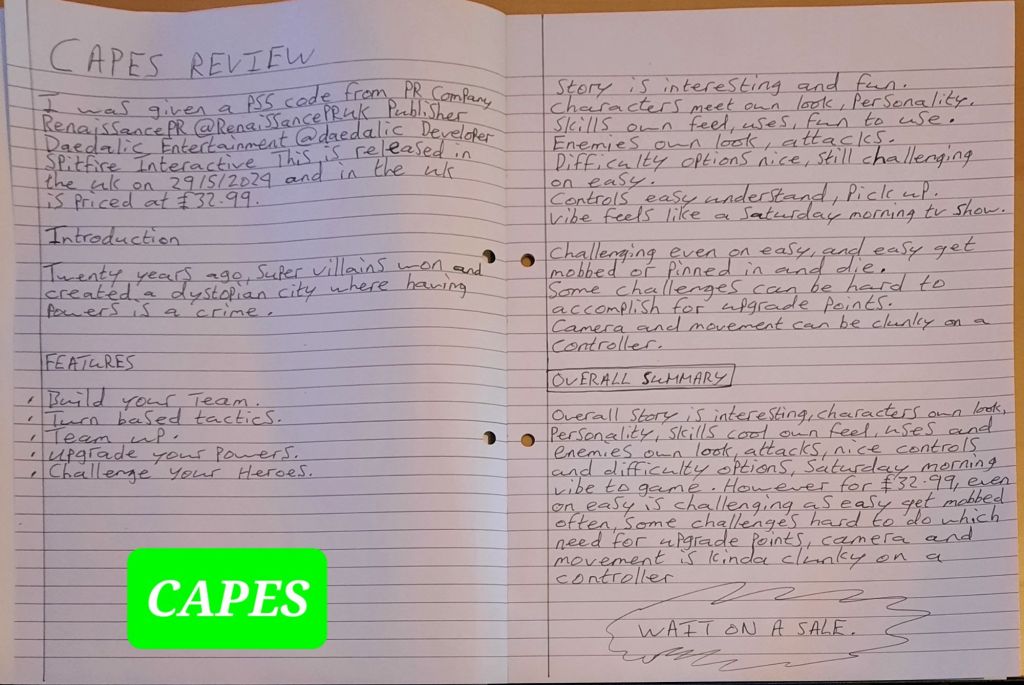 CAPES REVIEW
I was given a PS5 code from PR Company
RenaissancePR @RenaissancePRUK Publisher
Daedalic Entertainment @daedalic Developer
Spitfire Interactive This is released in
the uk on 29/5/2024 and in the uk
is priced at £32.99.
Introduction
Twenty years ago, super villains won and
created a dystopian city where having
powers is a crime.
FEATURES
• Build your Team.
• Turn based tactics.
• Team up.
• upgrade your Powers.
• Challenge your Heroes.
CAPES
Story is interesting and fun.
Characters meet own look, personality.
Skills own feel, uses, fun to use.
Enemies own look, attacks.
Difficulty options nice, still challenging
on easy.
Controls easy understand, pick up.
vibe feels like a Saturday morning tv show.
Challenging even on easy, and easy get
mobbed or pinned in and die.
Some challenges can be hard to
accomplish for upgrade points.
Camera and movement can be clunky on a
controller.
OVERALL SUMMARY
Overall story is interesting, characters own look,
Personality, skills cool own feel, uses and
enemies own look, attacks, nice controls
and difficulty options, Saturday morning
vibe to game. However for £32.99, even
on easy is challenging as easy get mobbed
often, some challenges hard to do which
need for upgrade points, camera and
movement is kinda clunky on a
controller
WAIT ON A SALE.